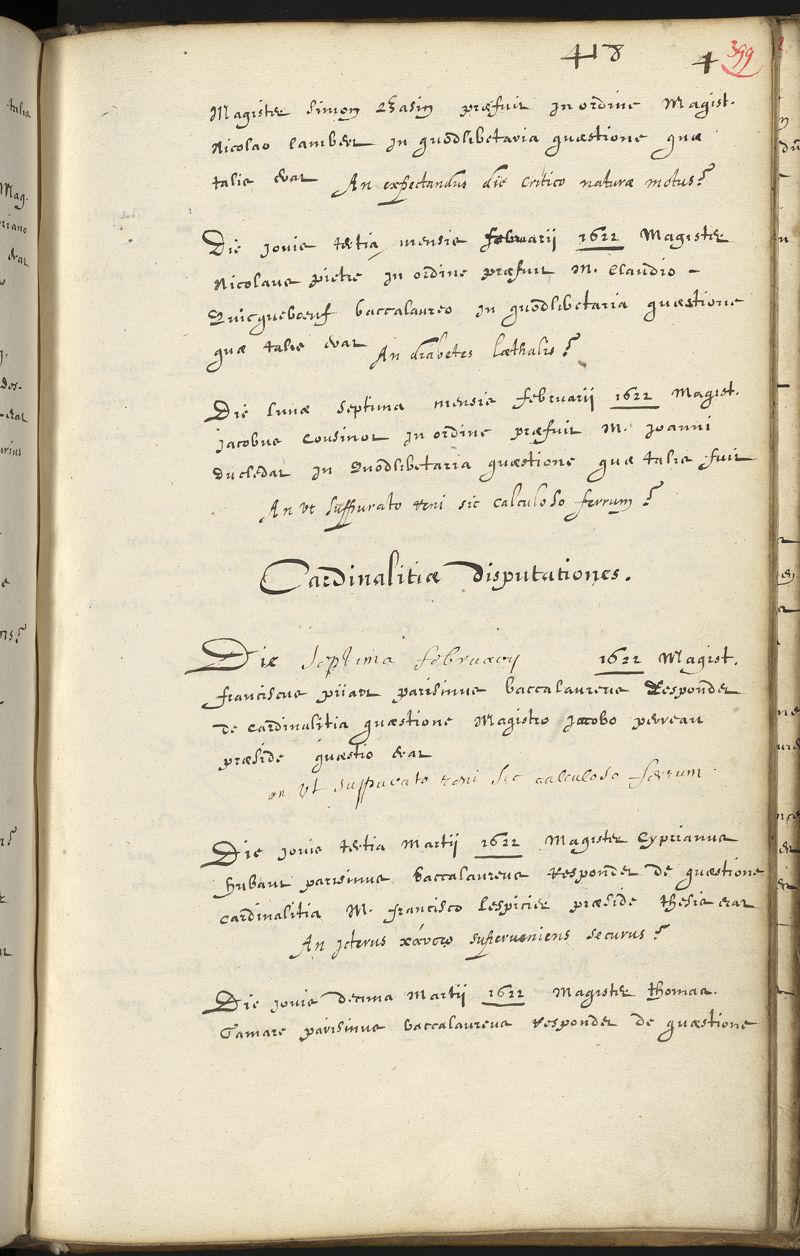 418
4 399
Magister Simon Bazin præfuit in ordine Magist.
Nicolao Lambert in quodlibetaria quæstione quæ
talis erat An expectandus die critico naturæ motus?
Die Jovis tertia mensis februarii 1622 Magister
Nicolaus pietre in ordine præfuit M. Claudio -
Quicquebœuf baccalaureo in quodlibetaria quæstione
quæ talis erat An diabetes læthalis?
Die lunæ septima mensis februarii 1622 Magist.
Jacobus Cousinot in ordine præfuit M. Joanni
ducledat in Quodlibetaria quæstione quæ talis fuit
An ut suppurato reni sic calculoso ferrum?
Cardinalitiæ Disputationes.
Die septima februarij 1622 Magist.
franciscus pijart parisinus baccalaureus Respondet
de Cardinalitia quæstione Magistro Jacobo perreau
præside quæstio erat
an ut suppurato reni sic calculoso ferrum
Die Jovis tertia Martij 1622 Magister Cyprianus
hubaut parisinus baccalaureus Respondet de quæstione
Cardinalitia M. francisco Lespicier præside thesis erat
An Icterus superveniens securus?
Die Jovis decima Martij 1622 Magister thomas.
Gamare parisinus baccalaureus Respondet de quæstione
talis
Mag.
riano
erat